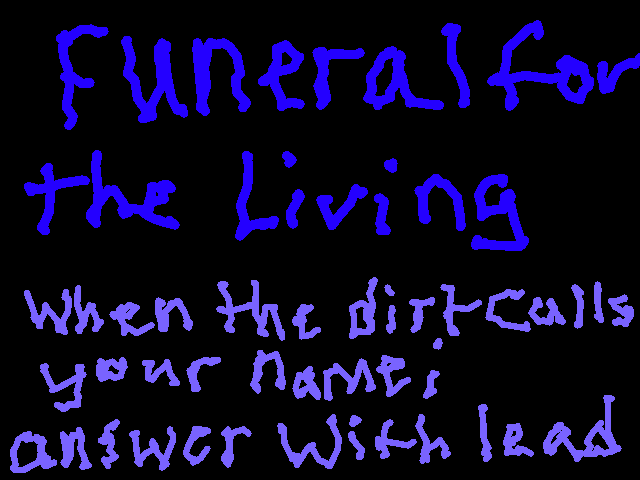 Funeral for
the Living
when the dirt calls
your name;
answer with lead